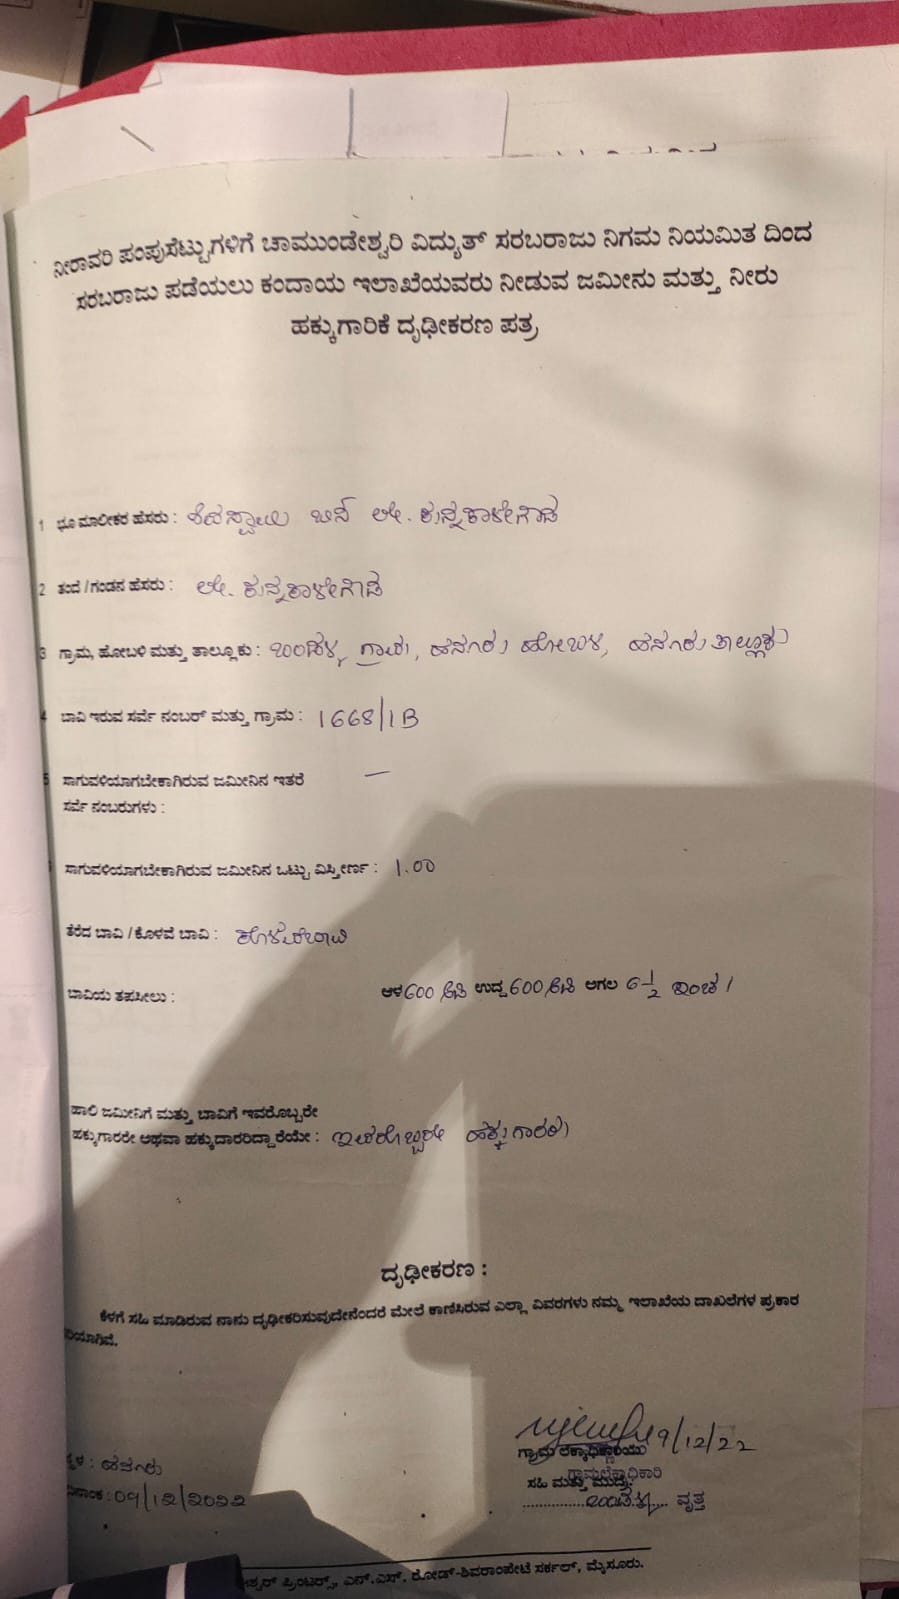 ನೀರಾವರಿ ಪಂಪುಸೆಟ್ಟುಗಳಿಗೆ ಚಾಮುಂಡೇಶ್ವರಿ ವಿದ್ಯುತ್ ಸರಬರಾಜು ನಿಗಮ ನಿಯಮಿತ ದಿಂದ
ಸರಬರಾಜು ಪಡೆಯಲು ಕಂದಾಯ ಇಲಾಖೆಯವರು ನೀಡುವ ಜಮೀನು ಮತ್ತು ನೀರು
ಹಕ್ಕುಗಾರಿಕೆ ದೃಢೀಕರಣ ಪತ್ರ
1 ಭೂ ಮಾಲೀಕರ ಹೆಸರು : ಶಿವಸ್ವಾಮಿ ಬಿನ್ ಲೇ. ಕುನ್ನಕಾಳೇಗೌಡ
2 ತಂದೆ / ಗಂಡನ ಹೆಸರು : ಲೇ. ಕುನ್ನಕಾಳೇಗೌಡ
3 ಗ್ರಾಮ, ಹೋಬಳಿ ಮತ್ತು ತಾಲ್ಲೂಕು : ಬಂಡಳ್ಳಿ ಗ್ರಾಮ, ಹನೂರು ಹೋಬಳಿ, ಹನೂರು ತಾಲ್ಲೂಕು
4 ಬಾವಿ ಇರುವ ಸರ್ವೆ ನಂಬರ್ ಮತ್ತು ಗ್ರಾಮ : 1668/1B
5 ಸಾಗುವಳಿಯಾಗಬೇಕಾಗಿರುವ ಜಮೀನಿನ ಇತರೆ —
ಸರ್ವೆ ನಂಬರುಗಳು :
ಸಾಗುವಳಿಯಾಗಬೇಕಾಗಿರುವ ಜಮೀನಿನ ಒಟ್ಟು ವಿಸ್ತೀರ್ಣ : 1.00
ತೆರೆದ ಬಾವಿ / ಕೊಳವೆ ಬಾವಿ : ಕೊಳವೆಬಾವಿ
ಬಾವಿಯ ತಪಸೀಲು : ಆಳ 600 ಅಡಿ ಉದ್ದ 600 ಅಡಿ ಅಗಲ 6 1/2 ಇಂಚು
ಹಾಲಿ ಜಮೀನಿಗೆ ಮತ್ತು ಬಾವಿಗೆ ಇವರೊಬ್ಬರೇ
ಹಕ್ಕುಗಾರರೇ ಅಥವಾ ಹಕ್ಕುದಾರರಿದ್ದಾರೆಯೇ : ಇವರೊಬ್ಬರೇ ಹಕ್ಕುಗಾರರು
ದೃಢೀಕರಣ :
ಕೆಳಗೆ ಸಹಿ ಮಾಡಿರುವ ನಾನು ದೃಢೀಕರಿಸುವುದೇನೆಂದರೆ ಮೇಲೆ ಕಾಣಿಸಿರುವ ಎಲ್ಲಾ ವಿವರಗಳು ನಮ್ಮ ಇಲಾಖೆಯ ದಾಖಲೆಗಳ ಪ್ರಕಾರ
ರಿಯಾಗಿವೆ.
9/12/22
ಗ್ರಾಮ ಲೆಕ್ಕಾಧಿಕಾರಿಯು
ಸ್ಥಳ : ಹನೂರು
ಗ್ರಾಮಲೆಕ್ಕಾಧಿಕಾರಿ
ಸಹಿ ಮತ್ತು ಮುದ್ರೆ
ದಿನಾಂಕ : 09/12/2022
ಬಂಡಳ್ಳಿ ವೃತ್ತ
ಶ್ವರ್ ಪ್ರಿಂಟರ್ಸ್, ಎನ್.ಎಸ್. ರೋಡ್-ಶಿವರಾಂಪೇಟೆ ಸರ್ಕಲ್, ಮೈಸೂರು.